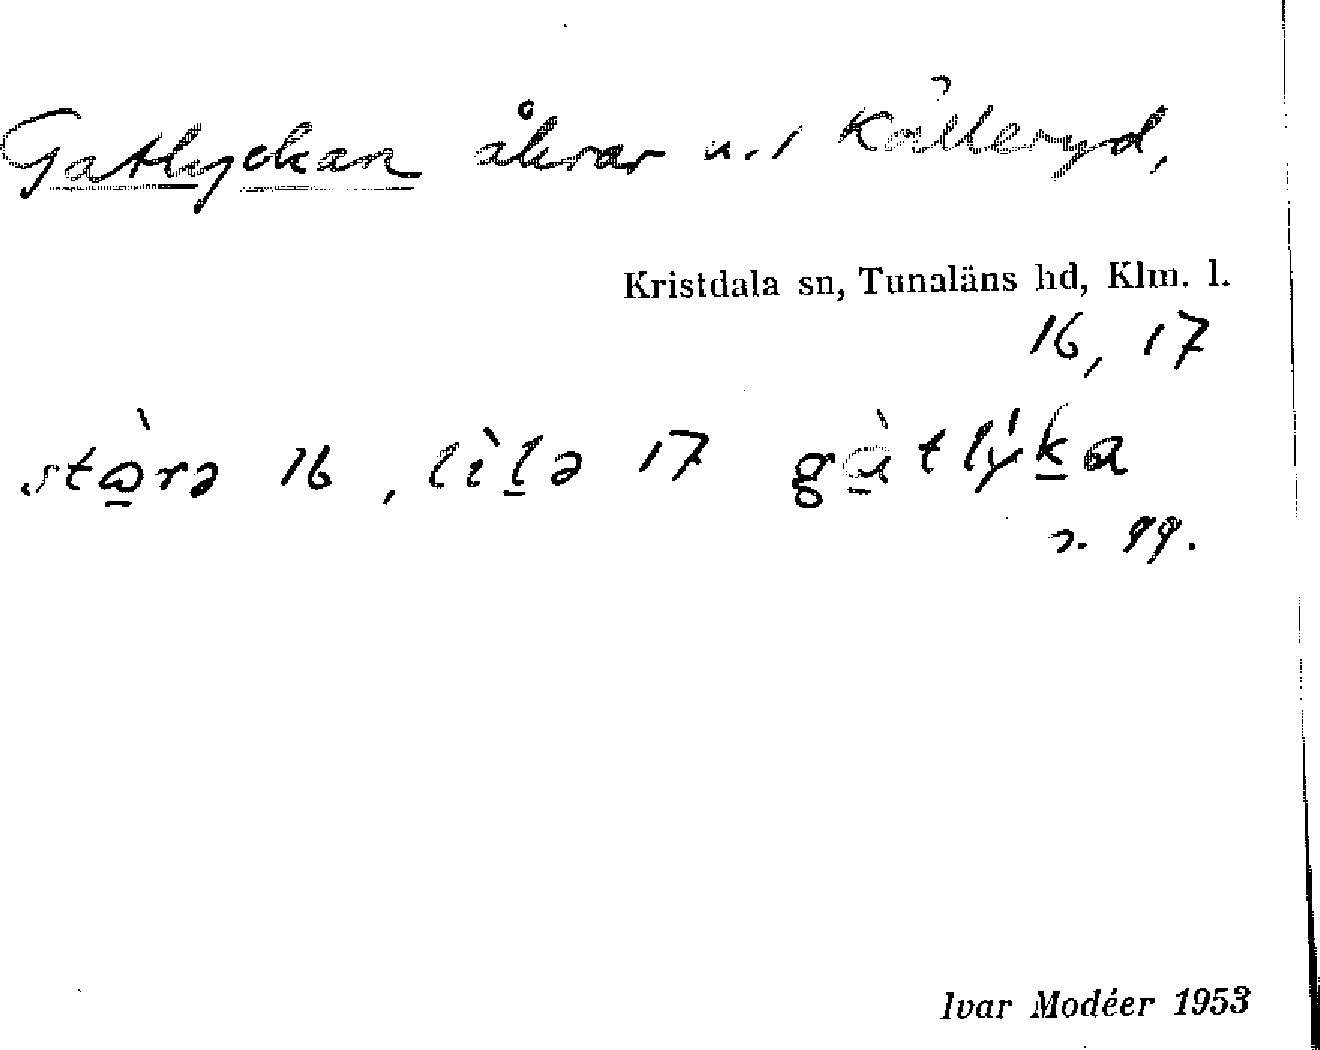 Gatlyckan åkrar n. 1 Källeryd,
Kristdala sn, Tunaläns hd, Klm. l.
16, 17
stɷ̀rə 16, lìlə 17 gàtlýka
s. 99.
Ivar Modéer 1953